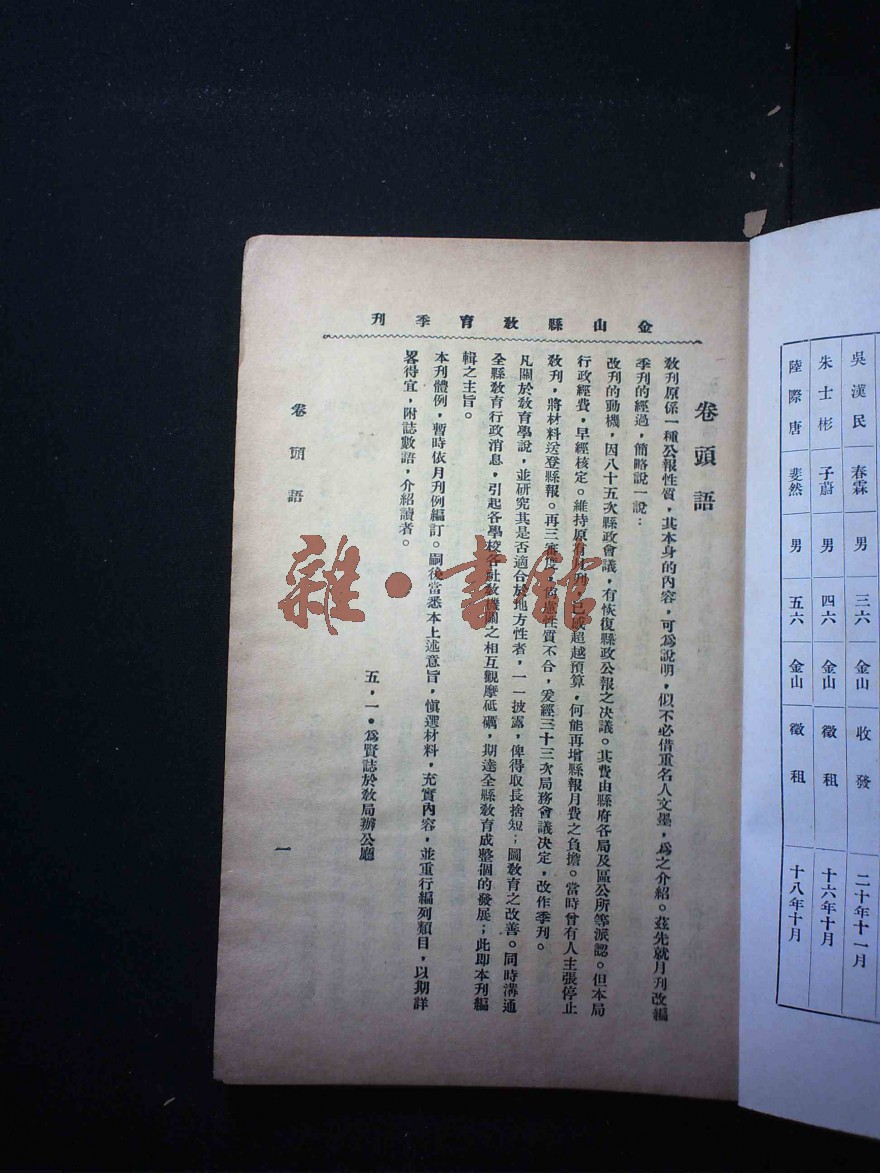 吳漢民 春霖 男 三六 金山 收發 二十年十一月
朱士彬 子蔚 男 四六 金山 徵租 十六年十月
陸際唐 斐然 男 五六 金山 徵租 十八年十月
金山縣教育季刊
卷頭語
教刊原係一種公報性質，其本身的內容，可爲說明，似不必借重名人文墨，爲之介紹。茲先就月刊改編
季刊的經過，簡略說一說：
改刊的動機，因八十五次縣政會議，有恢復縣政公報之决議。其費由縣府各局及區公所等派認。但本局
行政經費，早經核定。維持原有月刊，已感超越預算，何能再增縣報月費之負擔。當時曾有人主張停止
教刊，將材料送登縣報。再三審度，性質不合，爰經三十三次局務會議决定，改作季刊。
凡關於敎育學說，並研究其是否適合於地方性者，一一披露，俾得取長捨短；圖敎育之改善。同時溝通
全縣敎育行政消息，引起各學校各社敎機關之相互觀摩砥礪，期達全縣敎育成整個的發展；此即本刊編
輯之主旨。
本刊體例，暫時依月刊例編訂。嗣後當悉本上述意旨，愼選材料，充實內容，並重行編列類目，以期詳
畧得宜，附誌數語，介紹讀者。
五，一●爲賢誌於敎局辦公廳
卷頭語
一
雜·書館